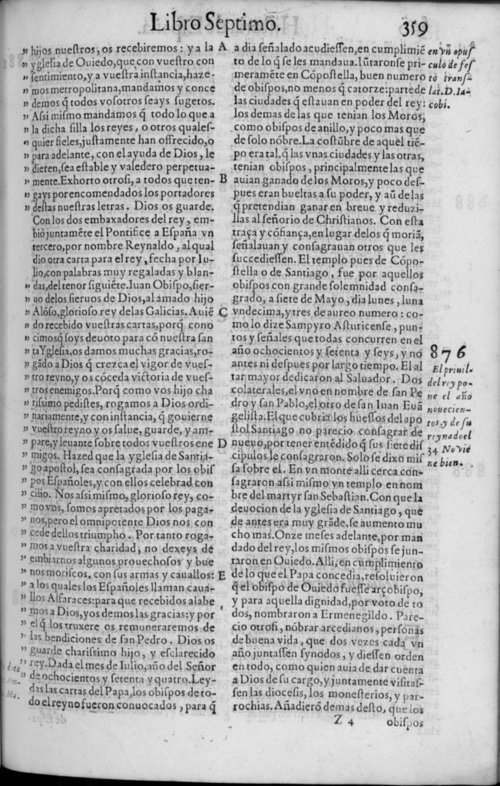 Libro Septimo. 359
hijos nuestros, os recebiremos: ya la
yglesia de Ouiedo, que con vuestro con
sentimiento, y a vuestra instancia, haze-
mos metropolitana, mandamos y conce
demos q̃ todos vosotros seays sugetos.
Assi mismo mandamos q̃ todo lo que a
la dicha silla los reyes, o otros quales-
quier fieles, justamente han offrecido, o
para adelante, con el ayuda de Dios, le
dieren, sea estable y valedero perpetua-
mente. Exhorto otrosi, a todos que ten-
gays por encomendados los portadores
destas nuestras letras. Dios os guarde.
Con los dos embaxadores del rey, em-
biò juntamẽte el Pontifice a España vn
tercero, por nombre Reynaldo, al qual
dio otra carta para el rey, fecha por Iu-
lio, con palabras muy regaladas y blan-
das, del tenor siguiẽte. Iuan Obispo, sier-
uo de los sieruos de Dios, al amado hijo
Alõso, glorioso rey de las Galicias. Auiẽ
do recebido vuestras cartas, porq̃ cono
cimos q̃ soys deuoto para cõ nuestra san
ta Yglesia, os damos muchas gracias, ro-
gãdo a Dios q̃ crezca el vigor de vues-
tro reyno, y os cõceda victoria de vues-
tros enemigos. Porq̃ como vos hijo cha
rissimo pedistes, rogamos a Dios ordi-
nariamente, y con instancia, q̃ gouierne
vuestro reyno y os salue, guarde, y am-
pare, y leuante sobre todos vuestros ene
migos. Hazed que la yglesia de Santia-
go apostol, sea consagrada por los obis
pos Españoles, y con ellos celebrad con
cilio. Nos assi mismo, glorioso rey, co-
mo vos, somos apretados por los paga-
nos, pero el omnipotente Dios nos con
cede dellos triumpho. Por tanto roga-
mos a vuestra charidad, no dexeys de
embiarnos algunos prouechosos y bue
nos moriscos, con sus armas y cauallos:
a los quales los Españoles llaman caua-
llos Alfaraces: para que recebidos alabe
mos a Dios, y os demos las gracias: y por
el q̃ los truxere os remuneraremos de
las bendiciones de san Pedro. Dios os
guarde charissimo hijo, y esclarecido
rey. Dada el mes de Iulio, año del Señor
de ochocientos y setenta y quatro. Ley-
das las cartas del Papa, los obispos de to-
do el reyno fueron conuocados, para q̃
A
B
C
D
E
a dia señalado acudiessen, en cumplimiẽ
to de lo q̃ se les mandaua. Iũtaronse pri-
meramẽte en Cõpostella, buen numero
de obispos, no menos q̃ catorze: parte de
las ciudades q̃ estauan en poder del rey:
los demas de las que tenian los Moros,
como obispos de anillo, y poco mas que
de solo nõbre. La costũbre de aquel tiẽ-
po era tal, q̃ las vnas ciudades y las otras,
tenian obispos, principalmente las que
auian ganado de los Moros, y poco des-
pues eran bueltas a su poder, y aũ de las
q̃ pretendian ganar en breue y reduzi-
llas al señorio de Christianos. Con esta
traça y cõfiança, en lugar delos q̃ moriã,
señalauan y consagrauan otros que les
succediessen. El templo pues de Cõpo-
stella o de Santiago, fue por aquellos
obispos con grande solemnidad consa-
grado, a siete de Mayo, dia lunes, luna
vndecima, y tres de aureo numero: co-
mo lo dize Sampyro Asturicense, pun-
tos y señales que todas concurren en el
año ochocientos y setenta y seys, y no
antes ni despues por largo tiempo. El al
tar mayor dedicaron al Saluador. Dos
colaterales, el vno en nombre de san Pe
dro y san Pablo, el otro de san Iuan Euã
gelista. El que cubria los huessos del apo
stol Santiago no parecio consagrar de
nueuo, por tener entẽdido q̃ sus siete di
cipulos le consagraron. Solo se dixo mis
sa sobre el. En vn monte alli cerca con-
sagraron assi mismo vn templo en nom
bre del martyr san Sebastian. Con que la
deuocion de la yglesia de Santiago, que
de antes era muy grãde, se aumento mu
cho mas. Onze meses adelante, por man
dado del rey, los mismos obispos se jun-
taron en Ouiedo. Alli, en cumplimiento
de lo que el Papa concedia, resoluieron
q̃ el obispo de Ouiedo fuesse arçobispo,
y para aquella dignidad, por voto de to
dos, nombraron a Ermenegildo. Pare-
cio otrosi, nõbrar arcedianos, personas
de buena vida, que dos vezes cada vn
año juntassen synodos, y diessen orden
en todo, como quien auia de dar cuenta
a Dios de su cargo, y juntamente visitas-
sen las diocesis, los monesterios, y par-
rochias. Añadierõ demas desto, que los
Z 4 obispos
en vn opus
culo de fes
to trans-
lat. D. Ia-
cobi.
876
El priuil.
del rey po-
ne el año
nouecien-
tos, y de su
reynado el
34 No vie
ne bien.